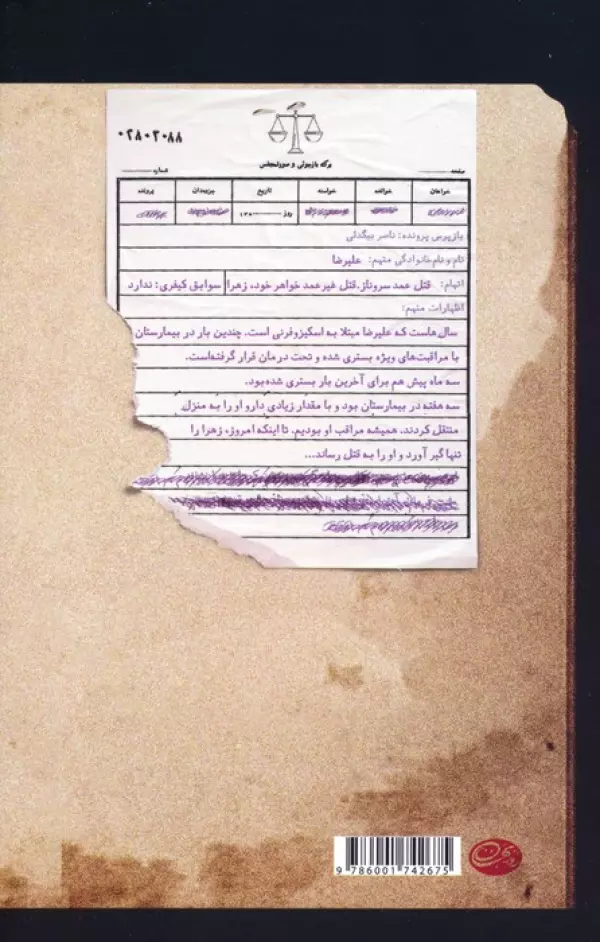 ۰۲۸۰۲۰۸۸
برگه بازجوئی و صورتمجلس
صفحه شماره
خواهان خوانده خواسته تاریخ جزییدان پرونده
روز ۱۳۸۰
بازپرس پرونده: ناصر بیگدلی
نام و نام خانوادگی متهم: علیرضا
اتهام: قتل عمد سروناز. قتل غیرعمد خواهر خود، زهرا سوابق کیفری: ندارد
اظهارات متهم:
سال‌هاست که علیرضا مبتلا به اسکیزوفرنی است. چندین بار در بیمارستان
با مراقبت‌های ویژه بستری شده و تحت درمان قرار گرفته‌است.
سه ماه پیش هم برای آخرین بار بستری شده‌بود.
سه هفته در بیمارستان بود و با مقدار زیادی دارو او را به منزل
منتقل کردند. همیشه مراقب او بودیم. تا اینکه امروز، زهرا را
تنها گیر آورد و او را به قتل رساند...
9 786001 742675